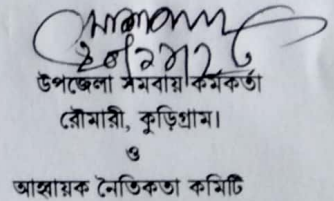 উপজেলা সমবায় কর্মকর্তা
রৌমারী, কুড়িগ্রাম।
ও
আহ্বায়ক নৈতিকতা কমিটি